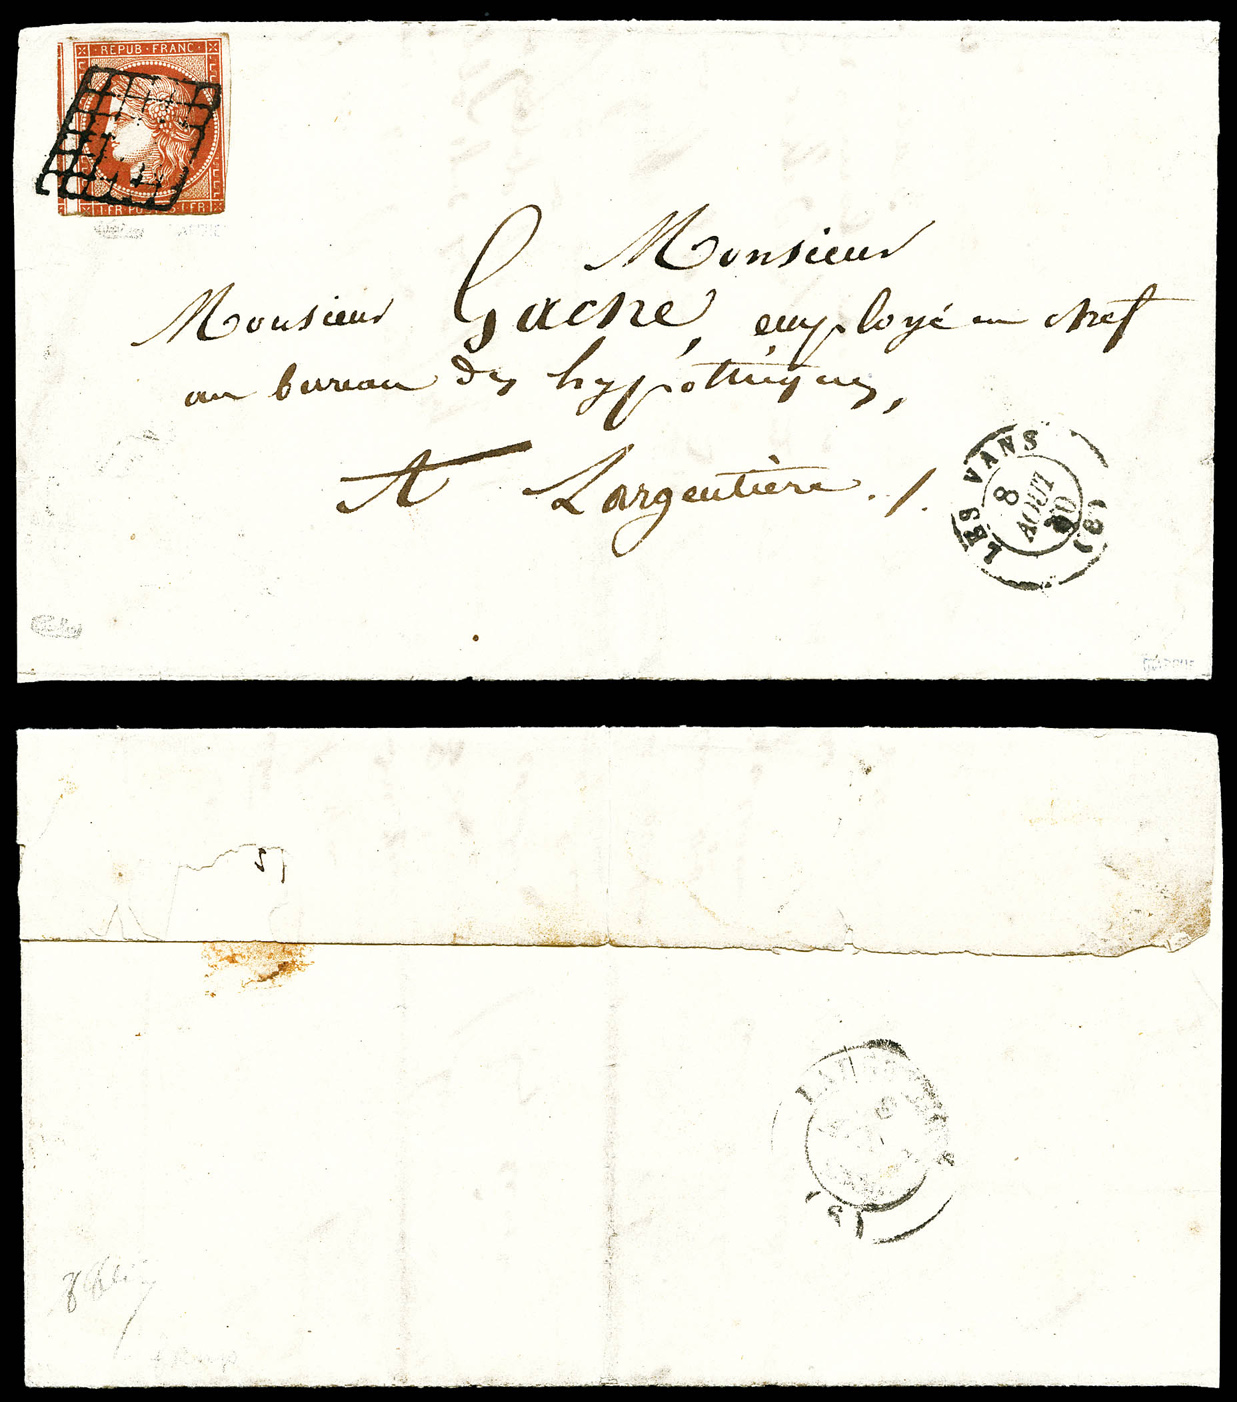 REPUB · FRANC ·
1 · FR · POSTES · 1 · FR ·
Monsieur
Monsieur Gache, employé en chef
au bureau des hypothèques,
A Largentière . /.
LES VANS
8
AOUT
50
(6)
51
(6)